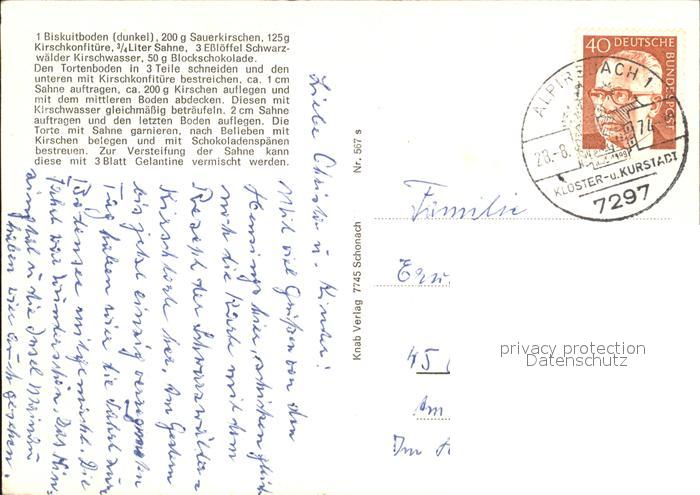 1 Biskuitboden (dunkel), 200 g Sauerkirschen, 125g
Kirschkonfitüre, ¾ Liter Sahne, 3 Eßlöffel Schwarz-
wälder Kirschwasser, 50 g Blockschokolade.
Den Tortenboden in 3 Teile schneiden und den
unteren mit Kirschkonfitüre bestreichen, ca. 1 cm
Sahne auftragen, ca. 200 g Kirschen auflegen und
mit dem mittleren Boden abdecken. Diesen mit
Kirschwasser gleichmäßig beträufeln. 2 cm Sahne
auftragen und den letzten Boden auflegen. Die
Torte mit Sahne garnieren, nach Belieben mit
Kirschen belegen und mit Schokoladenspänen
bestreuen. Zur Versteifung der Sahne kann
diese mit 3 Blatt Gelantine vermischt werden.
Liebe Christa u. Kinder!
Mit viel Grüßen von den
hier, schicken
noch die Karte mit dem
Rezept der Schwarzwälder
Kirschtorte her. Am Gestern
bis jetzt einzig
Tag haben wir die Fahrt zum
Bodensee mitgemacht. Die
Fahrt war wunderschön. Das
u die Insel Meinau
haben wir auch gesehen.
Knab Verlag 7745 Schonach
Nr. 567 s
40 DEUTSCHE BUNDESPOST
ALPIRSBACH 1
23.-8. 74
KLOSTER-u. KURSTADT
7297
Familie
45
Am
Im
privacy protection
Datenschutz